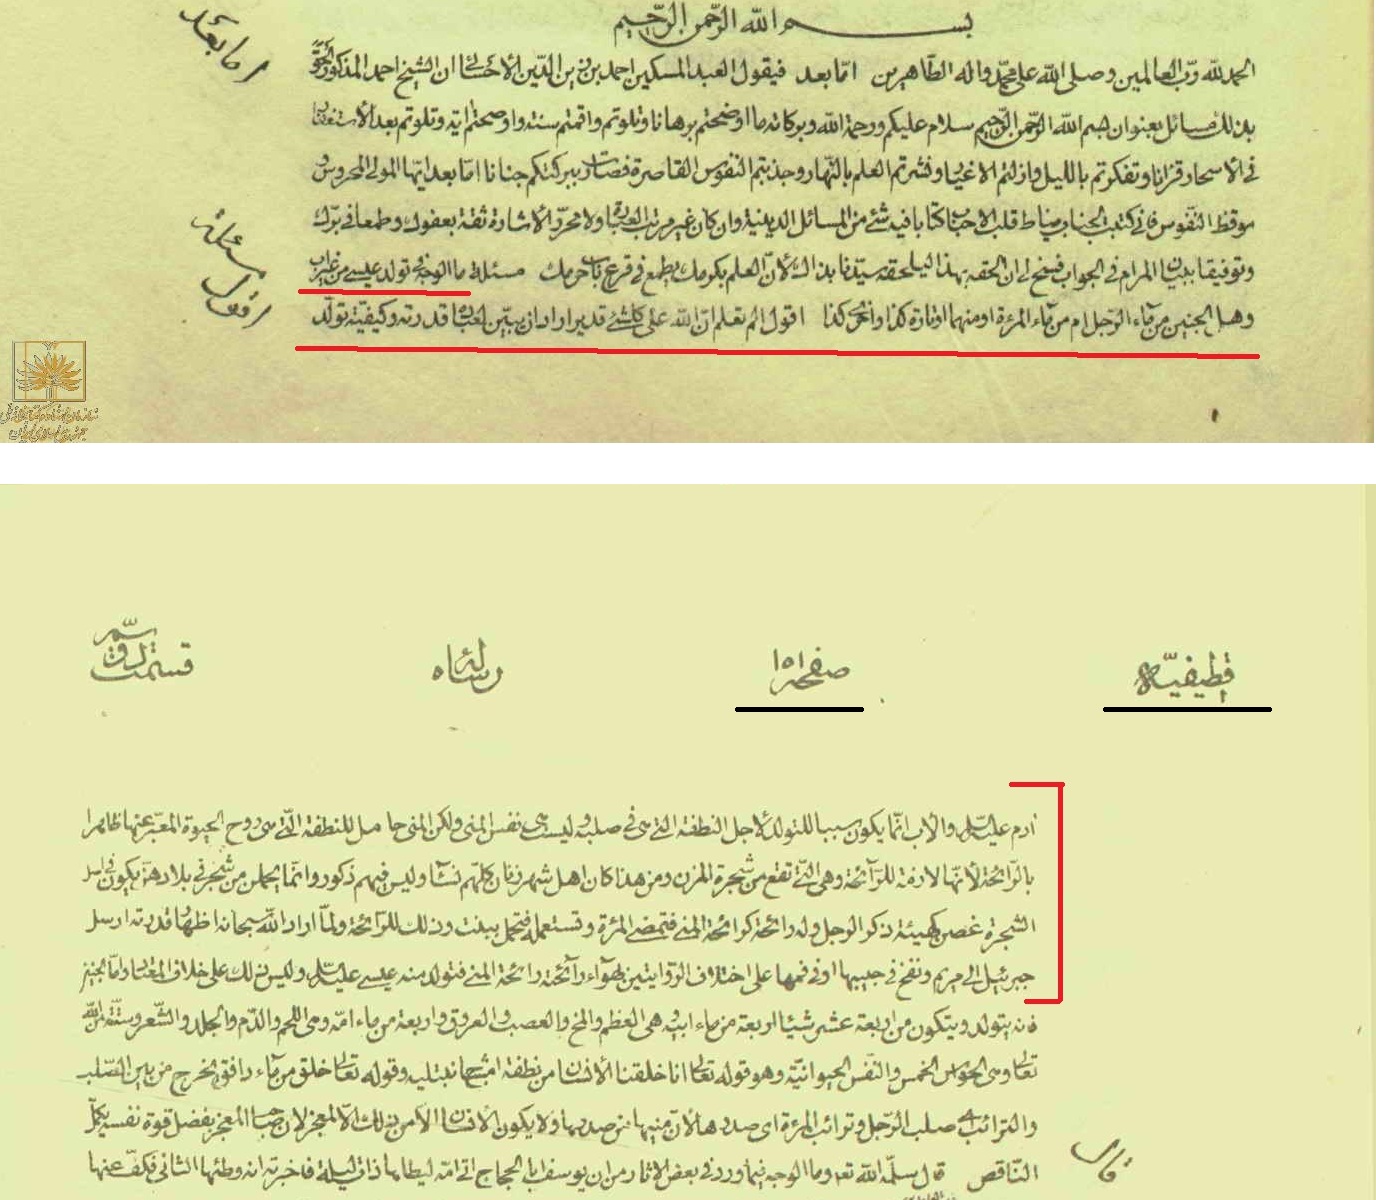 بسم الله الرّحمن الرّحيم
اما بعد
الحمد لله ربّ العالمين وصلى الله على محمّد واله الطّاهرين امّا بعد فيقول العبد المسكين احمد بن زين الدّين الاحسائى ان الشيخ احمد المذكور
بذلك مسائل بعنوان بسم الله الرّحمن الرّحيم سلام عليكم ورحمة الله وبركاته ما اوضحتم برهانا وتلوتم واقمتم سنته واوضحتم اية وتلوتم بعد
فى الاسحار قرانا وتفكرتم بالليل وازلتم الاغيار ونشرتم العلم بالنّهار وجذبتم النفوس القاصرة فصارت ببركتكم جنانا امّا بعد ايّها المولى المحروس
موقظ النّفوس فانى كتبت لجناب مناط قلب الاحباب كتابا فيه شئ من المسائل الدينية وان كان غير مرتب ولا محرّر الاشارة ثقة بعفوك وطمعا فى برّك
مسئلة
وتوفيقا ببيان المرام فى الجواب فسنح لى ان الحقه بهذا ليلحقه سيّدنا بذاك لأنّ العلم بكرمك يطمع فى قرع باب حرمك مسئلة ما الوجه فى تولد عيسى من غير اب
اقول
وهل الجنين من ماء الرّجل ام من ماء المرئة او منهما او تارة كذا واخرى كذا اقول الم تعلم انّ الله على كل شئ قدير اراد ان يبيّن لعباده قدرته وكيفيّة تولّد
قطيفيّه
صفحه ١٥١
رساله
قسمت
ادم عليه السلام والاب انّما يكون سببا للتولد لاجل النطفة التى هى فى صلبه وليست هى نفس المنى ولكن المنى حامل للنطفة الّتى هى روح الحيوة المعبّر عنها ظاهرا
بالرّائحة لأنّها لازمة للرّائحة وهى الّتى تقع من شجرة المزن ومن هذا كان اهل شهر زنان كلّهم نسآء وليس فيهم ذكور وانّما يحملن من شجر فى بلادهنّ يكون فى
الشجرة غصن كهيئة ذكر الرجل وله رائحة كرائحة المنى فتمضى المرئة وتستعمله فتحمل ببنت وذلك للرّائحة ولمّا اراد الله سبحانه اظهار قدرته ارسل
جبرئيل الى مريم ونفخ فى جيبها او فى فمها على اختلاف الرّوايتين بهوآء رآئحته رائحة المنى فتولد منه عيسى عليه السلام وليس ذلك على خلاف المعتاد وامّا الجنين
فانه يتولد ويتكون من اربعة عشر شيئا اربعة من ماء ابيه وهى العظم والمخ والعصب والعروق واربعة من ماء امّه وهى اللحم والدّم والجلد والشّعر وستّة من الله
تعالى وهى الحواس الخمس والنّفس الحيوانيّة وهو قوله تعالى انا خلقنا الانسان من نطفة امشاج نبتليه وقوله تعالى خلق من مآء دافق يخرج من بين الصّلب
والترائب صلب الرّجل وترائب المرئة اى صدرها لأنّ منيها من صدرها ولا يكون الانسان الا من ذلك الا المعجز لان صاحب المعجز بفضل قوة نفسه يكمّل
قال
النّاقص قال سلّمه الله تعالى وما الوجه فيما ورد فى بعض الاثار من ان يوسف ابا الحجاج اتى امّه ليطأها ذات ليلة فاخبرته انه وطئها الثانى فكفّ عنها